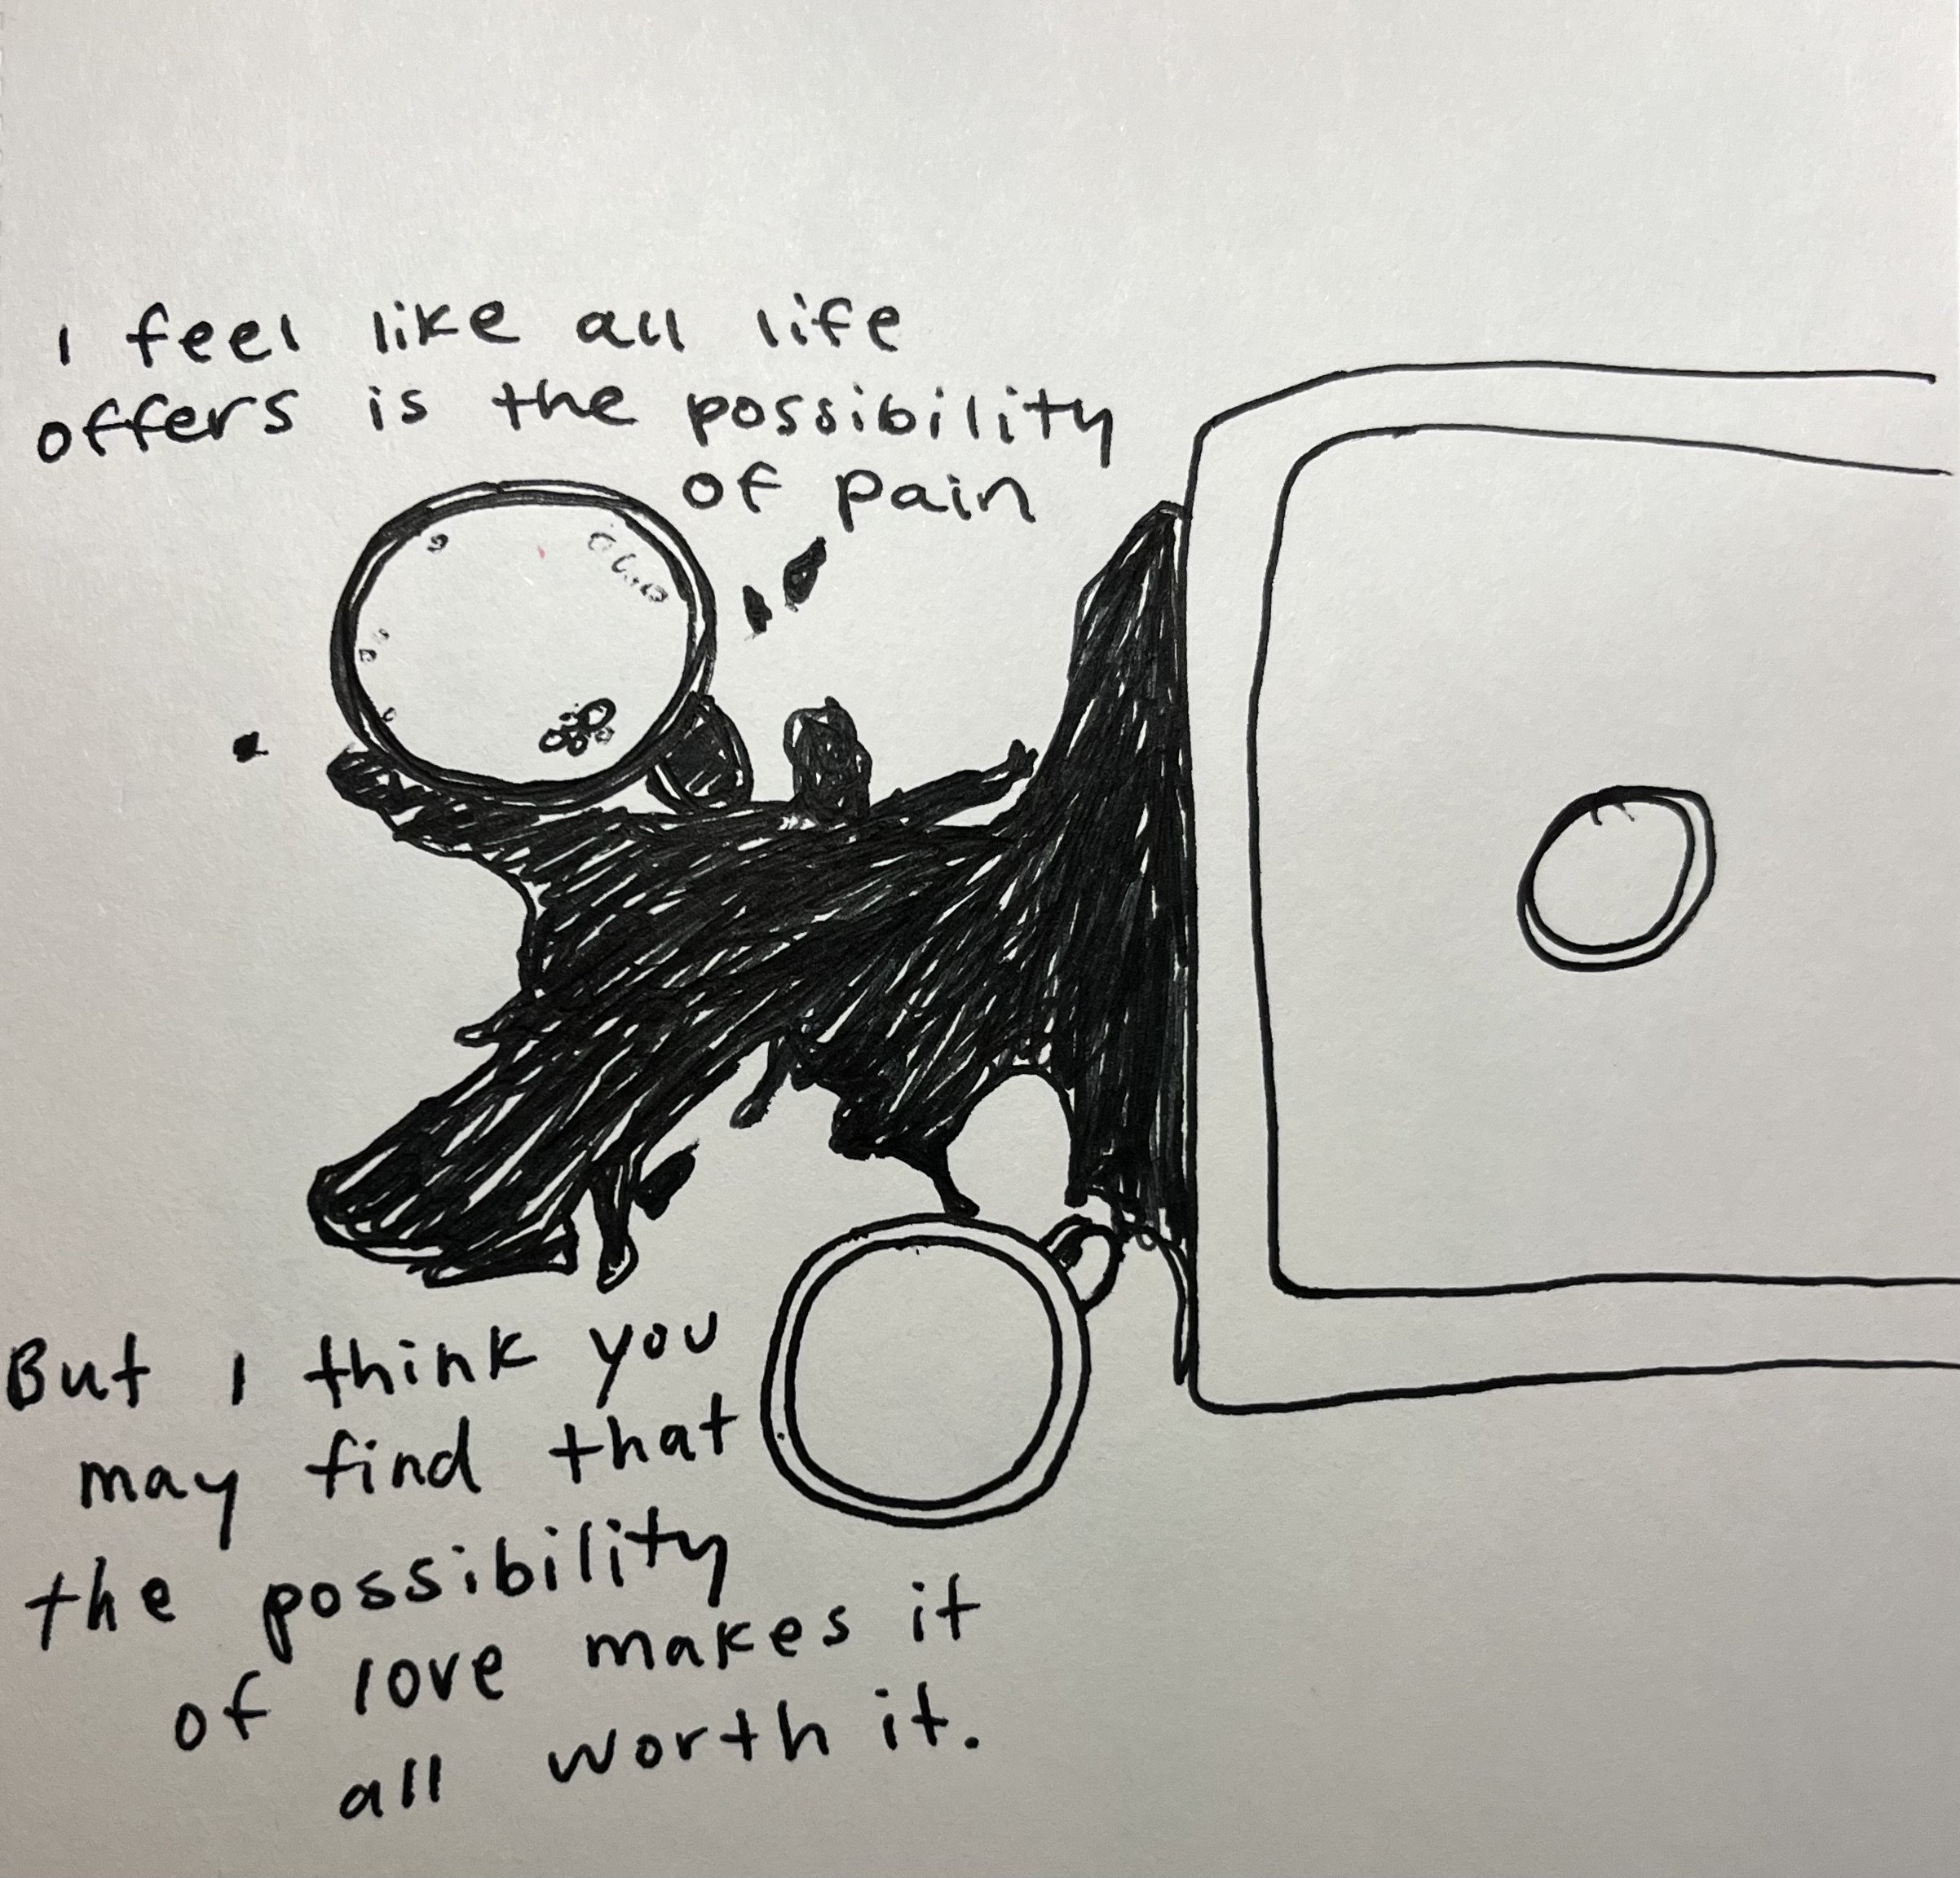 I feel like all life
offers is the possibility
of pain
But I think you
may find that
the possibility
of love makes it
all worth it.